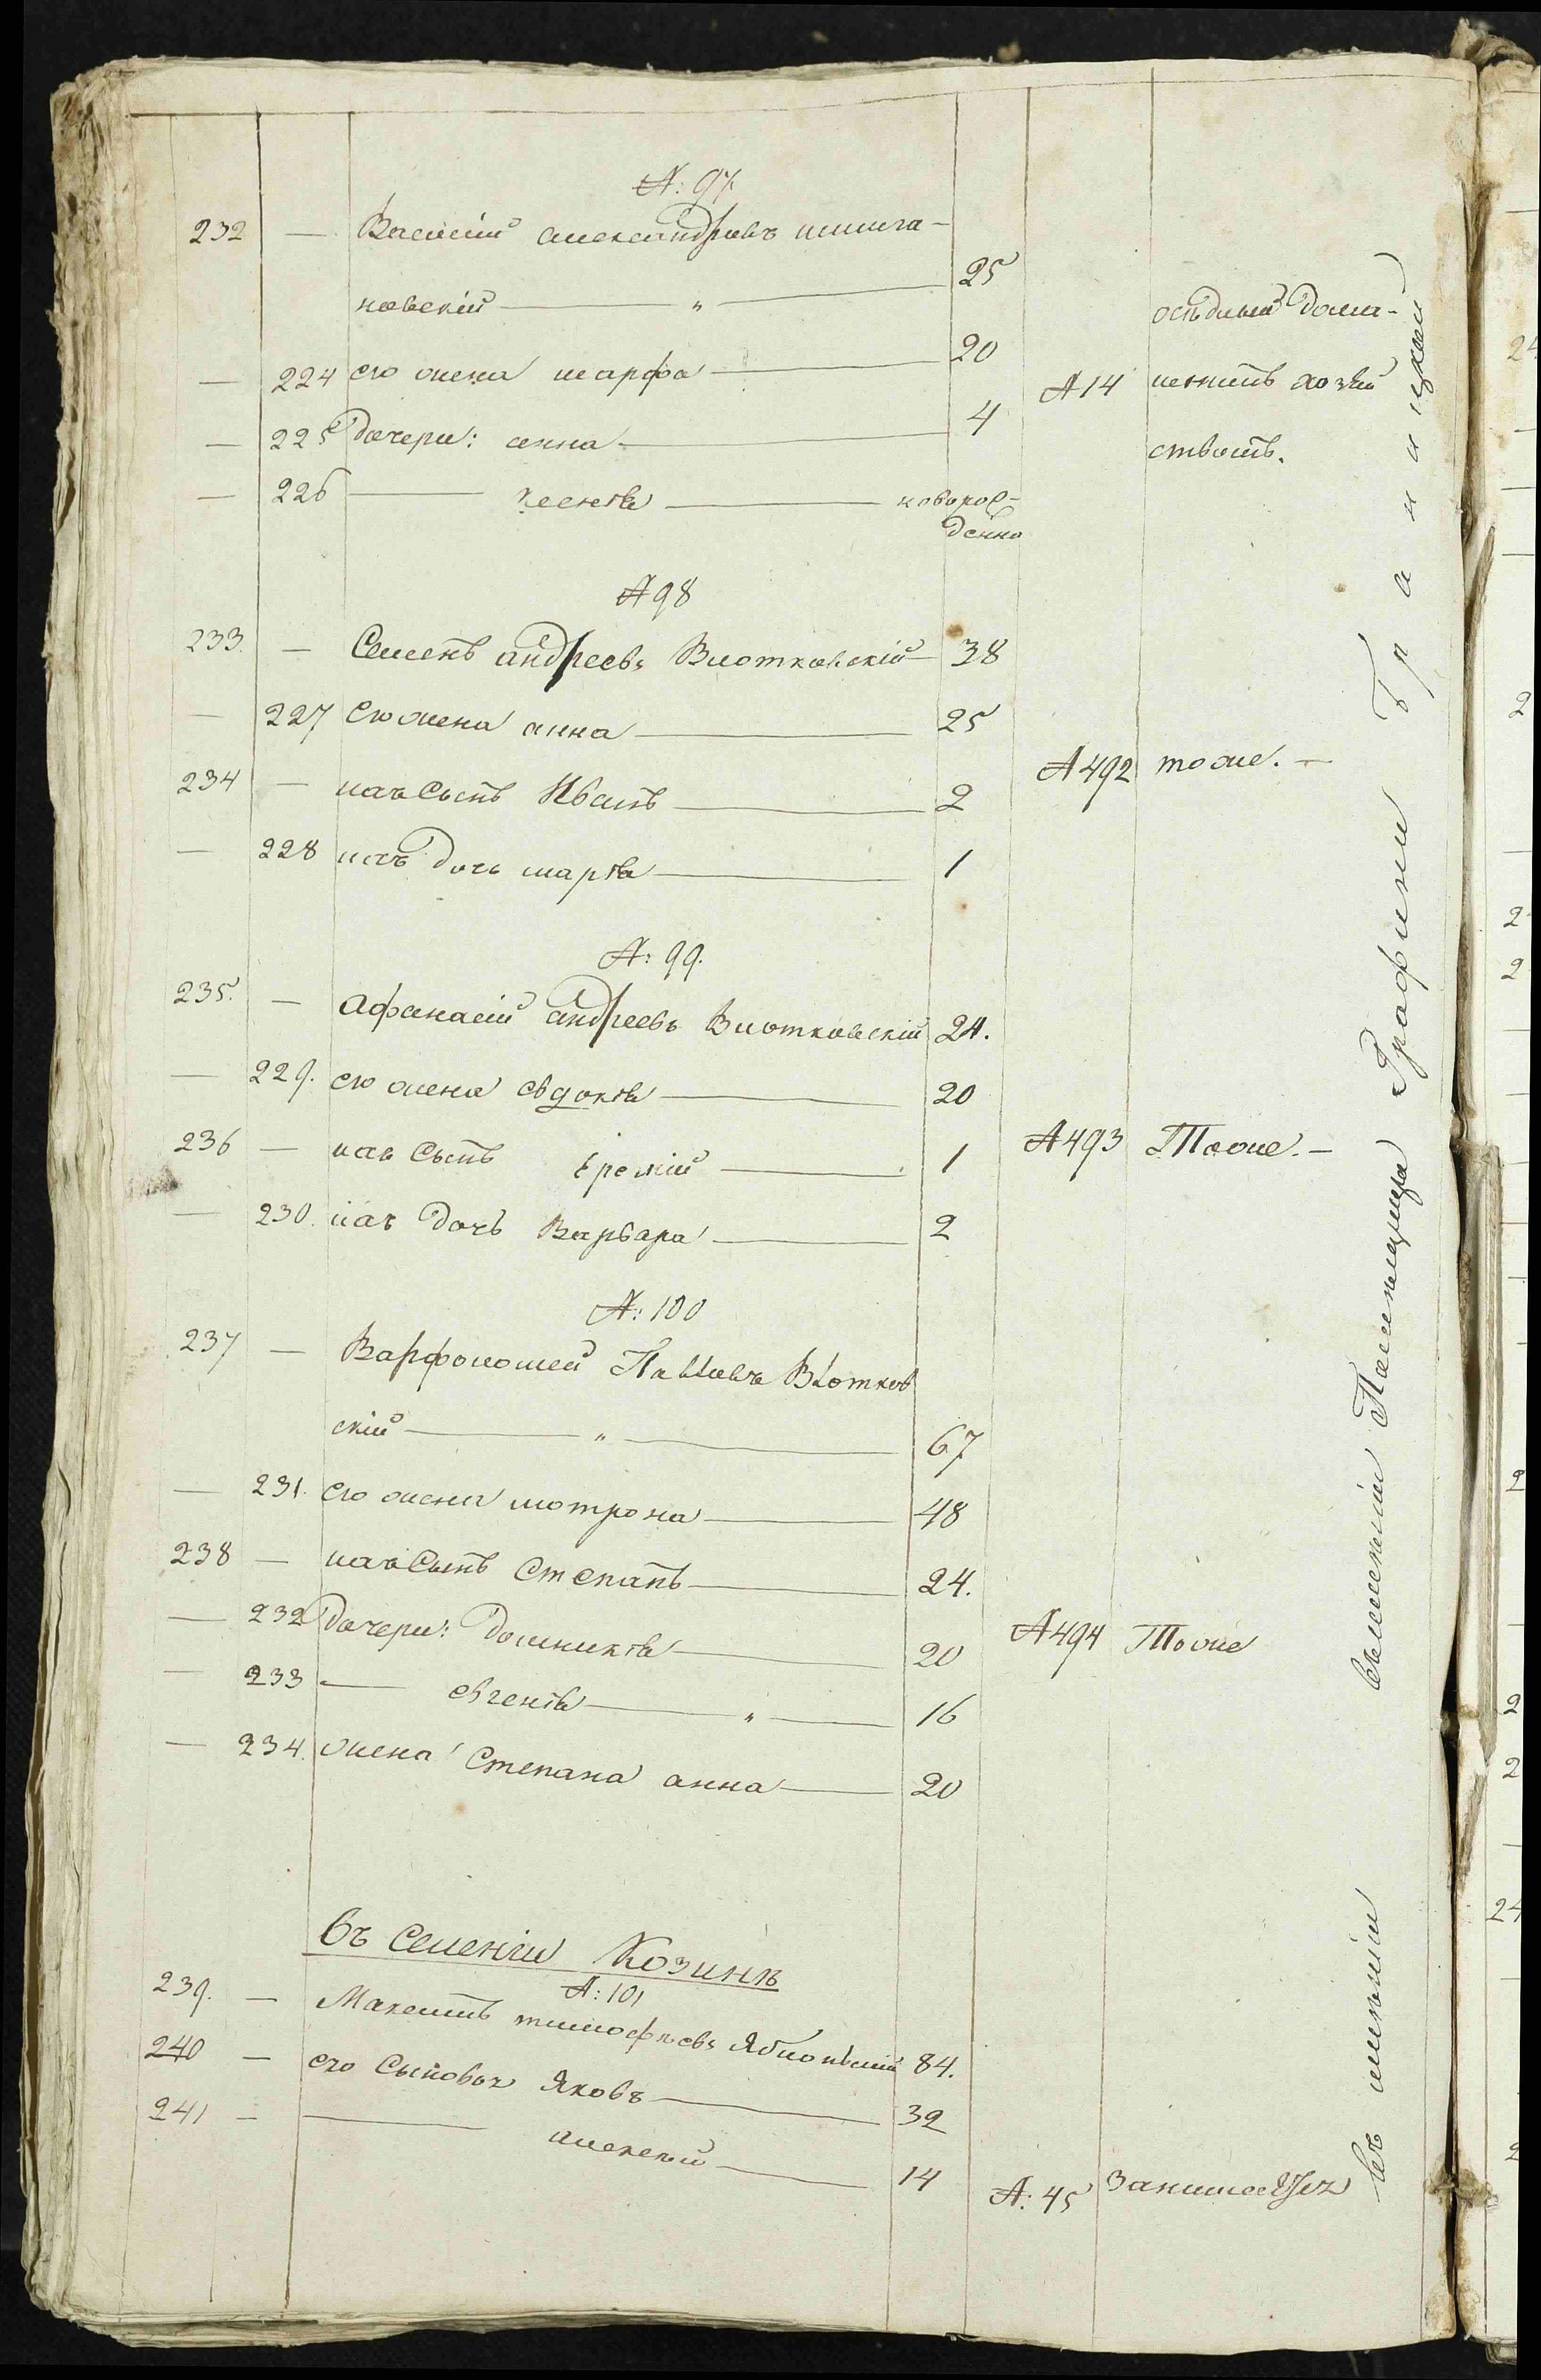 №: 97.
232 — Василій александровъ шишга-
новскій — „ — 25
— 224 его жена марфа — 20
— 225 дочери: анна — 4
— 226 — ксенія — новорож-
денна
№ 14 осѣдлымъ дома-
шнимъ хозяй
ствомъ.
№ 98
233. — Семенъ андреевъ Виотковскій — 38
— 227 его жена анна — 25
234 — ихъ Сынъ Иванъ — 2
— 228 ихъ дочь марія — 1
№ 492 тоже. —
№: 99.
235. — афанасій андреевъ Виотковскій 24.
— 229. его жена евдокія — 20
236 — ихъ Сынъ Еремій — 1
— 230. ихъ дочь Варвара — 2
№ 493 Тоже. —
№: 100
237 — Варфоломей Павловъ Виотков
скій — „ — 67
— 231. его жена мотрона — 48
238 — ихъ Сынъ Степанъ — 24.
— 232 дочери: Домникія — 20
— 233 — евгенія — „ — 16
— 234. жена Степана анна — 20
№ 494 Тоже
въ Селеніи Козинѣ
№: 101
239. — Максимъ тимофѣевъ Яблонскій 84.
240 — его Сыновья Яковъ — 32
241 — — алексѣй — 14
№: 45 Занимается
въ имѣніи Помѣщицы Графини Браницкой